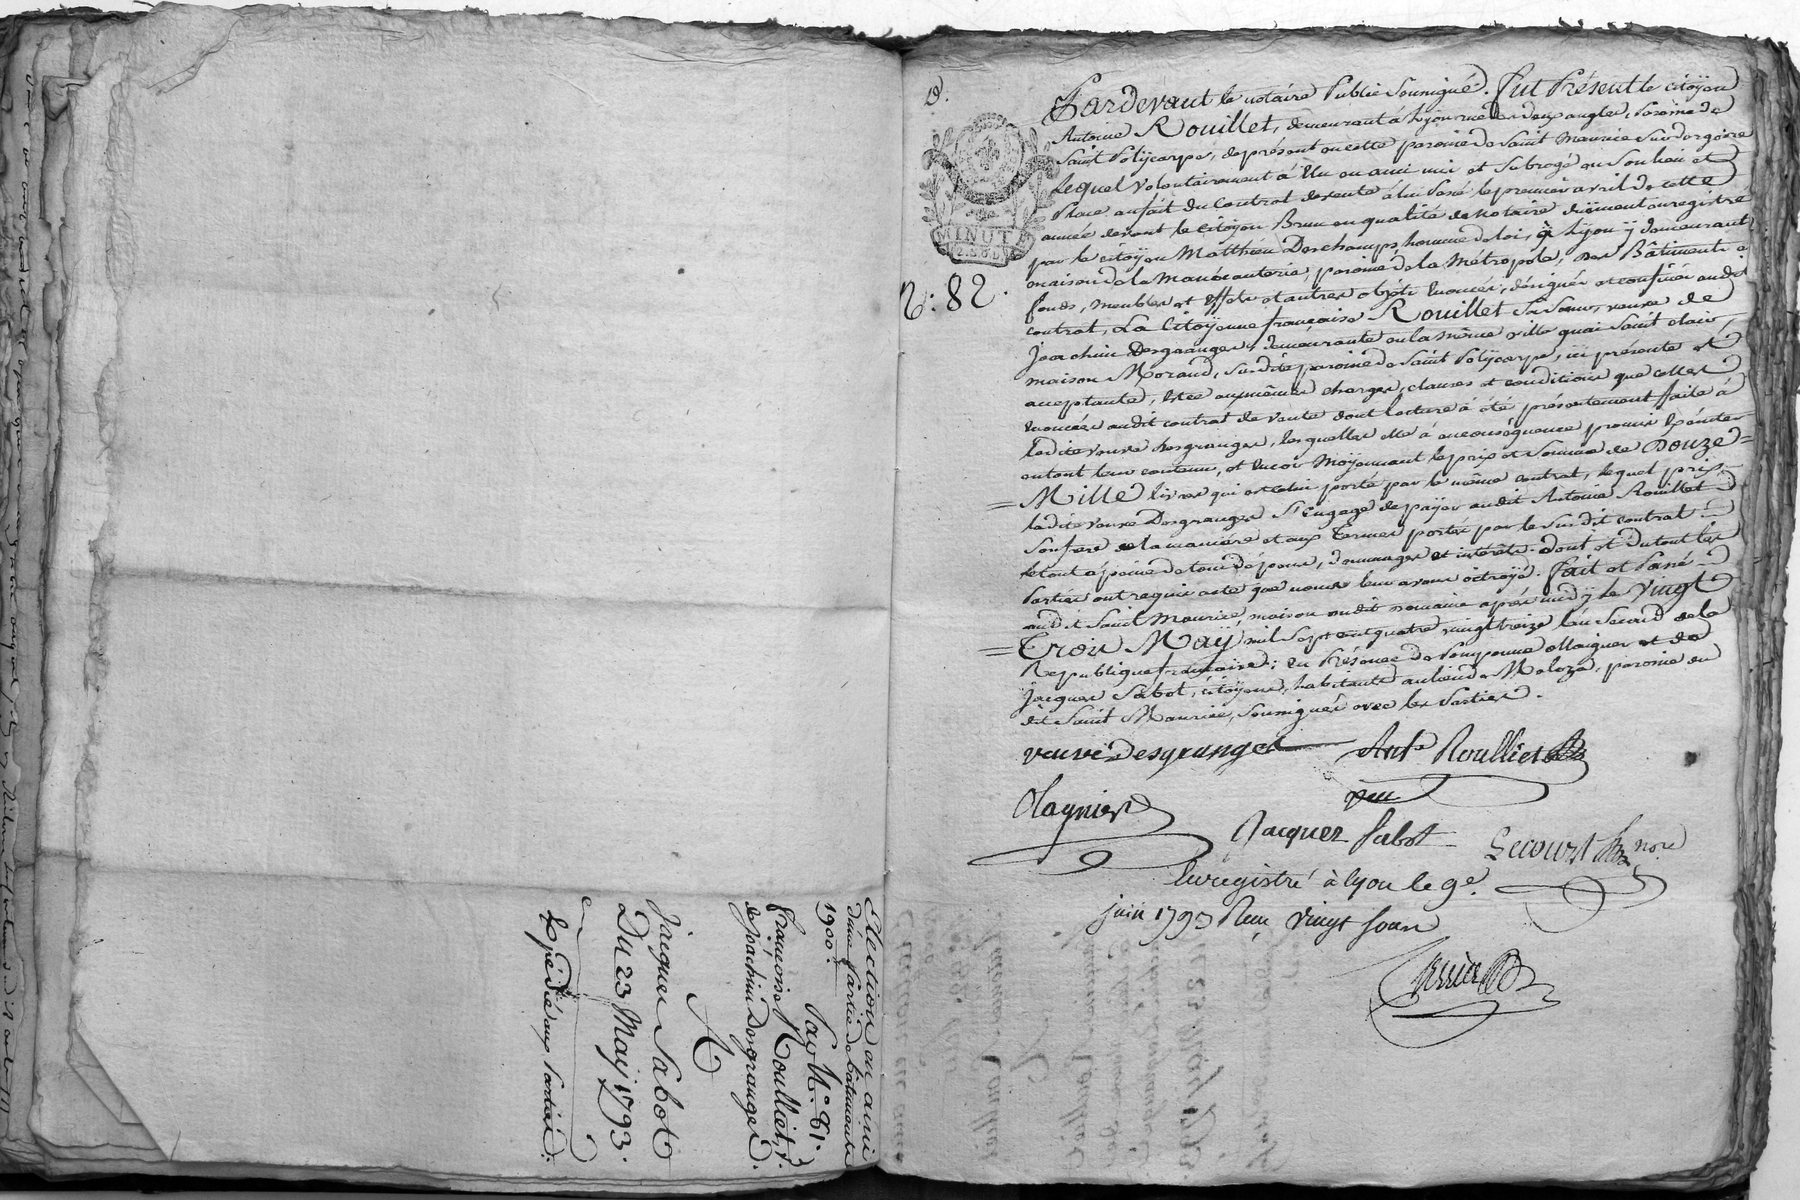 Election en ami
d'une Partie de bâtiments
1900.lt
Par N.o 61.
françoise Roulliet, v.e
de Joachim Desgranges.
A
Jacques Sabot
Du 23 Maÿ 1793.
Expédié aux Parties.
MINUTE
2. S. 6 D
N.: 82.
Pardevant le notaire Public Soussigné. Fut Présent le citoÿen
Antoine Rouillet, demeurant à Lÿon rue des deux angles, paroisse de
Saint Polÿcarpe, de présent en cette paroisse de Saint Maurice Sur dargoire
Lequel volontairement à Elu en ami mis et Subrogé en Son lieu et
Place au fait du Contrat de vente à lui Passé le premier avril de cette
année devant le citoÿen Brun en qualité de Notaire duement enregistré
par le citoÿen Matthieu Deschamps, homme de loi, à Lÿon ÿ demeurant
maison de la Manécanterie, paroisse de la Métropole, des Bâtiments
fonds, meubles et Effets et autres objets énoncés, désignés et confinés audit
contrat, La Citoÿenne françoise Rouillet Sa Sœur, veuve de
Joachim Desgranges, demeurante en la même ville quai Saint clair,
maison Morand, Susdite paroisse de Saint Polÿcarpe, ici présente et
acceptante, Et ce aux mêmes charges, clauses et conditions que celles
énoncées audit contrat de vente dont lecture à été présentement faite à
ladite veuve Desgranges, lesquelles elle à en conséquence promis Exécuter
en tout leur contenu, et Encor Moÿennant le prix et Somme de Douze =
= Mille livres qui est celui porté par le même contrat, lequel prix
ladite veuve Desgranges S'Engage de paÿer audit Antoine Rouillet
Son frere de la maniere et aux Termes portés par le Susdit contrat
le tout à peine de tous dépens, dommages et intérêts. Dont et du tout les
Parties ont requis acte que nous leur avons octroÿé. Fait et Passé
audit Saint Maurice, maison dudit Romain après midÿ le Vingt
= Trois Maÿ mil Sept cent quatre vingt treize l'an Second de la
Republique française; En Présence de Ollagnier et de
Jacques Sabot, citoÿens, habitants au lieu de paroisse du
dit Saint Maurice, Soussignés avec les Parties.
veuve Desgranges Ant.e Roulliet
Olagnier
Jacques Sabot Secourt no.re
Enregistré à lyon le 9.e
juin 1793 Reçu vingt Sous